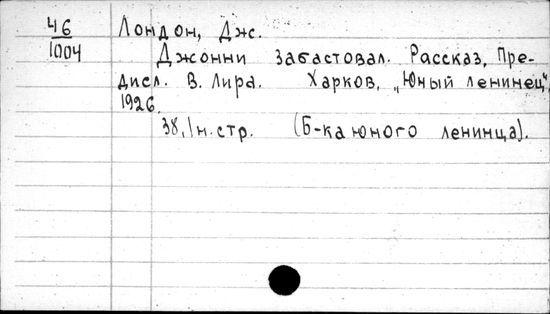 46
1004
Лондон, Дж.
Джонни забастовал. Рассказ, Пре-
дисл. В. Лира. Харков, „Юный ленинец“,
1926.
38, 1 н. стр. (Б-ка юного ленинца).